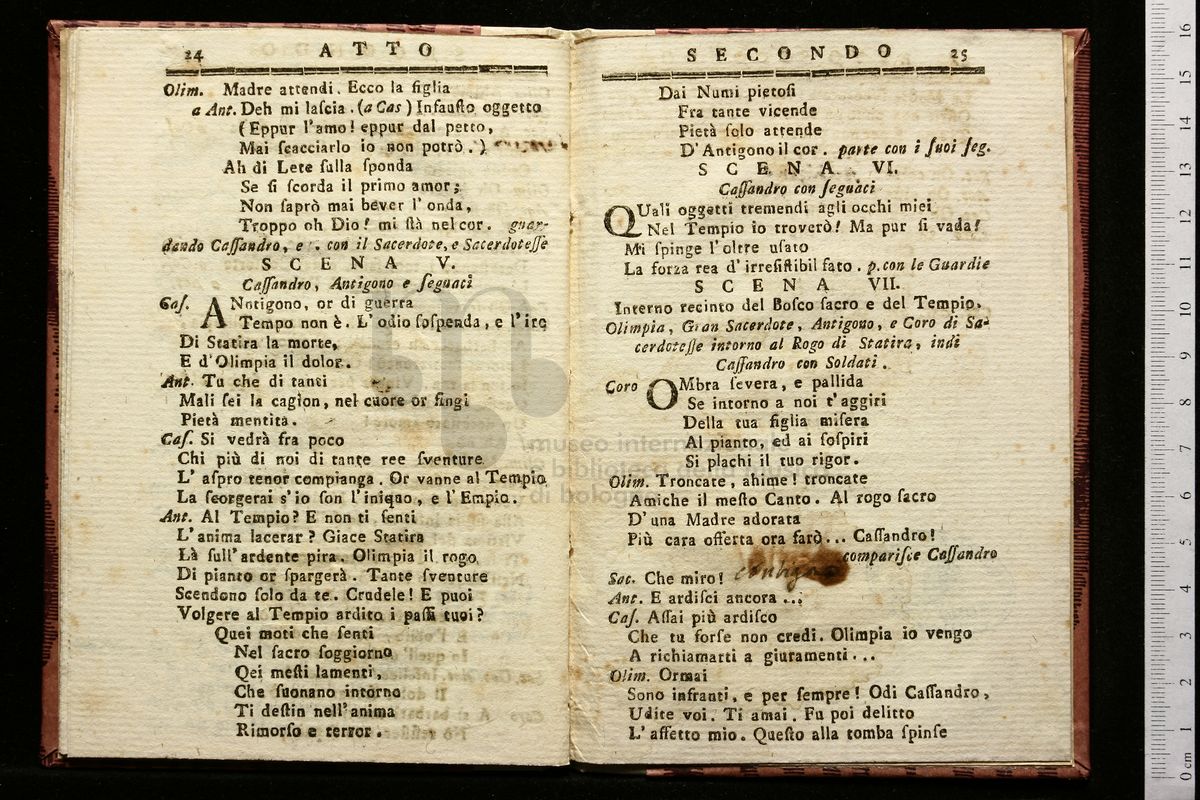 24 ATTO
Olim. Madre attendi. Ecco la figlia
a Ant. Deh mi laſcia. (a Cas) Infauſto oggetto
(Eppur l'amo! eppur dal petto,
Mai ſcacciarlo io non potrò.)
Ah di Lete ſulla ſponda
Se ſi ſcorda il primo amor;
Non ſaprò mai bever l'onda,
Troppo oh Dio! mi ſtà nel cor. guar-
dando Caſſandro, e p. con il Sacerdote, e Sacerdoteſſe
SCENA V.
Caſſandro, Antigono e ſeguaci
Caſ. ANtigono, or di guerra
Tempo non è. L'odio ſoſpenda, e l'ire
Di Statira la morte,
E d'Olimpia il dolor.
Ant. Tu che di tanti
Mali ſei la cagion, nel cuore or fingi
Pietà mentita.
Caſ. Si vedrà fra poco
Chi più di noi di tante ree ſventure
L'aſpro tenor compianga. Or vanne al Tempio
La ſeorgerai s'io ſon l'iniquo, e l'Empio.
Ant. Al Tempio? E non ti ſenti
L'anima lacerar? Giace Statira
Là ſull'ardente pira. Olimpia il rogo
Di pianto or ſpargerà. Tante ſventure
Scendono ſolo da te. Crudele! E puoi
Volgere al Tempio ardito i paſſi tuoi?
Quei moti che ſenti
Nel ſacro ſoggiorno
Qei meſti lamenti,
Che ſuonano intorno
Ti deſtin nell'anima
Rimorſo e terror.
SECONDO 25
Dai Numi pietoſi
Fra tante vicende
Pietà ſolo attende
D'Antigono il cor. parte con i ſuoi ſeg.
SCENA VI.
Caſſandro con ſeguaci
QUali oggetti tremendi agli occhi miei
Nel Tempio io troverò! Ma pur ſi vada!
Mi ſpinge l'oltre uſato
La forza rea d'irreſiſtibil fato. p. con le Guardie
SCENA VII.
Interno recinto del Boſco ſacro e del Tempio.
Olimpia, Gran Sacerdote, Antigono, e Coro di Sa-
cerdoteſſe intorno al Rogo di Statira, indi
Caſſandro con Soldati.
Coro OMbra ſevera, e pallida
Se intorno a noi t'aggiri
Della tua figlia miſera
Al pianto, ed ai ſoſpiri
Si plachi il tuo rigor.
Olim. Troncate, ahime! troncate
Amiche il meſto Canto. Al rogo ſacro
D'una Madre adorata
Più cara offerta ora farò... Caſſandro!
compariſce Caſſandro
Sac. Che miro!
Ant. E ardiſci ancora...
Caſ. Aſſai più ardiſco
Che tu forſe non credi. Olimpia io vengo
A richiamarti a giuramenti...
Olim. Ormai
Sono infranti, e per ſempre! Odi Caſſandro,
Udite voi. Ti amai. Fu poi delitto
L'affetto mio. Queſto alla tomba ſpinſe
museo internazionale
e biblioteca della musica
di bologna
0 cm 1 2 3 4 5 6 7 8 9 10 11 12 13 14 15 16